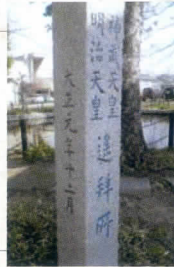 神武天皇
明治天皇
遙拜所
大正元年十二月